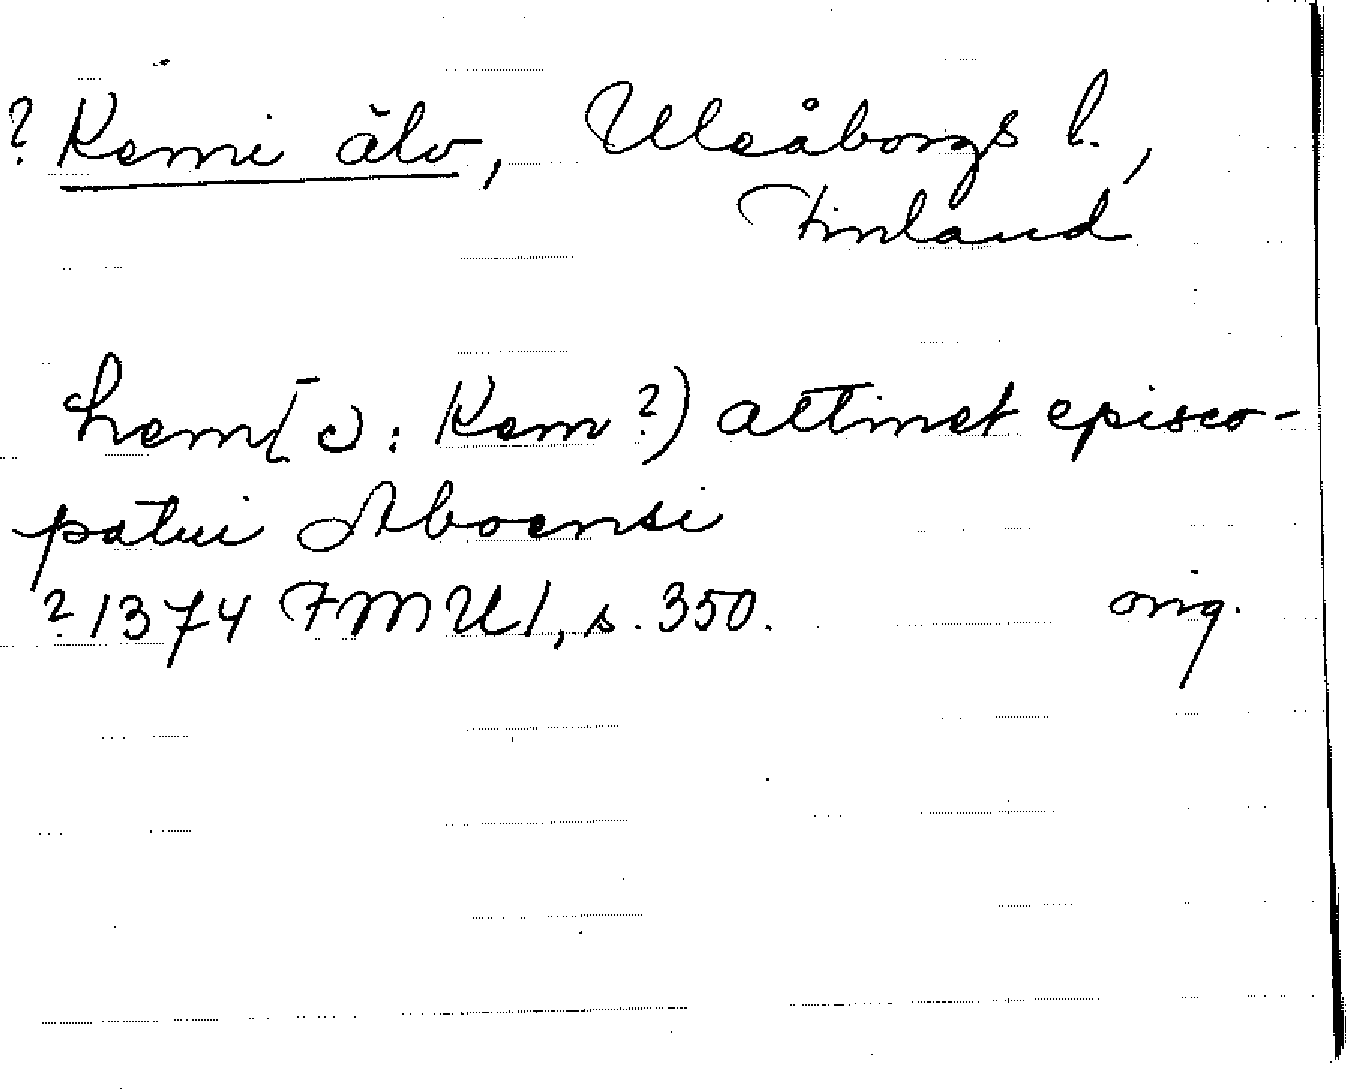 ? Kemi älv, Uleåborgs l.,
Finland
hem[ɔ: Kem?) attinet episco-
patui Aboensi
? 1374 FMU 1, s. 350. orig.